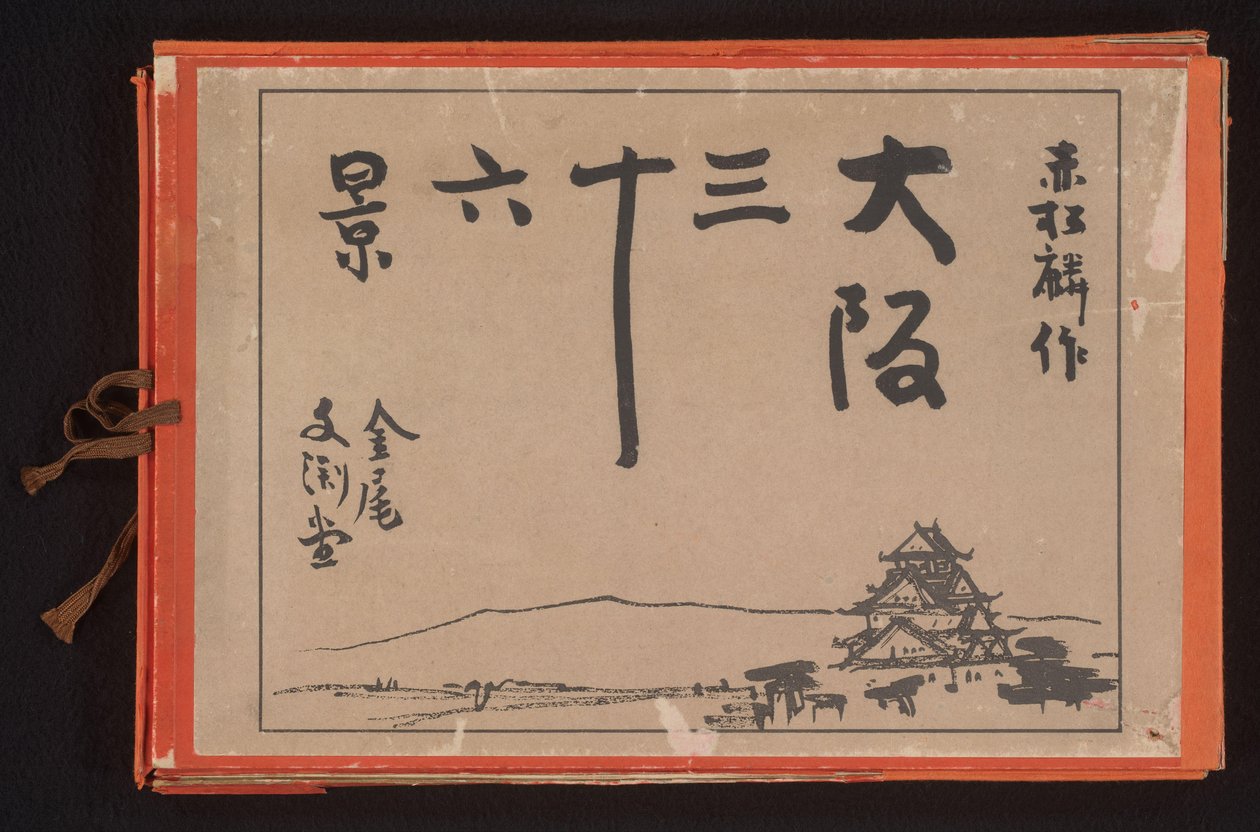 赤松麟作
大阪
三
十
六
景
金尾
文渕堂